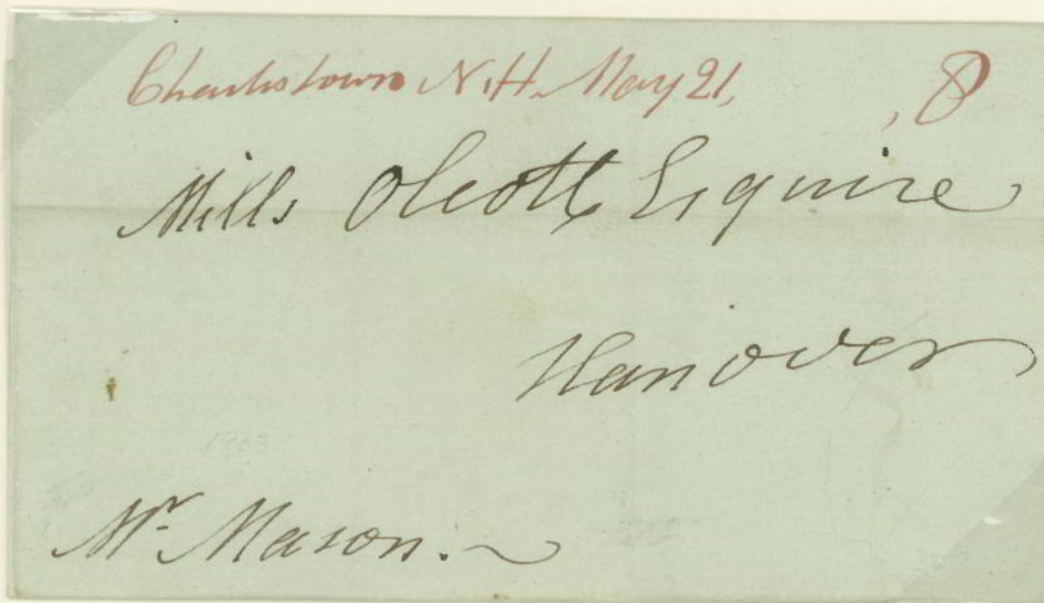 Charlestown N.H. May 21, , 8
Mills Olcott Esquire
Hanover
Mr. Mason.